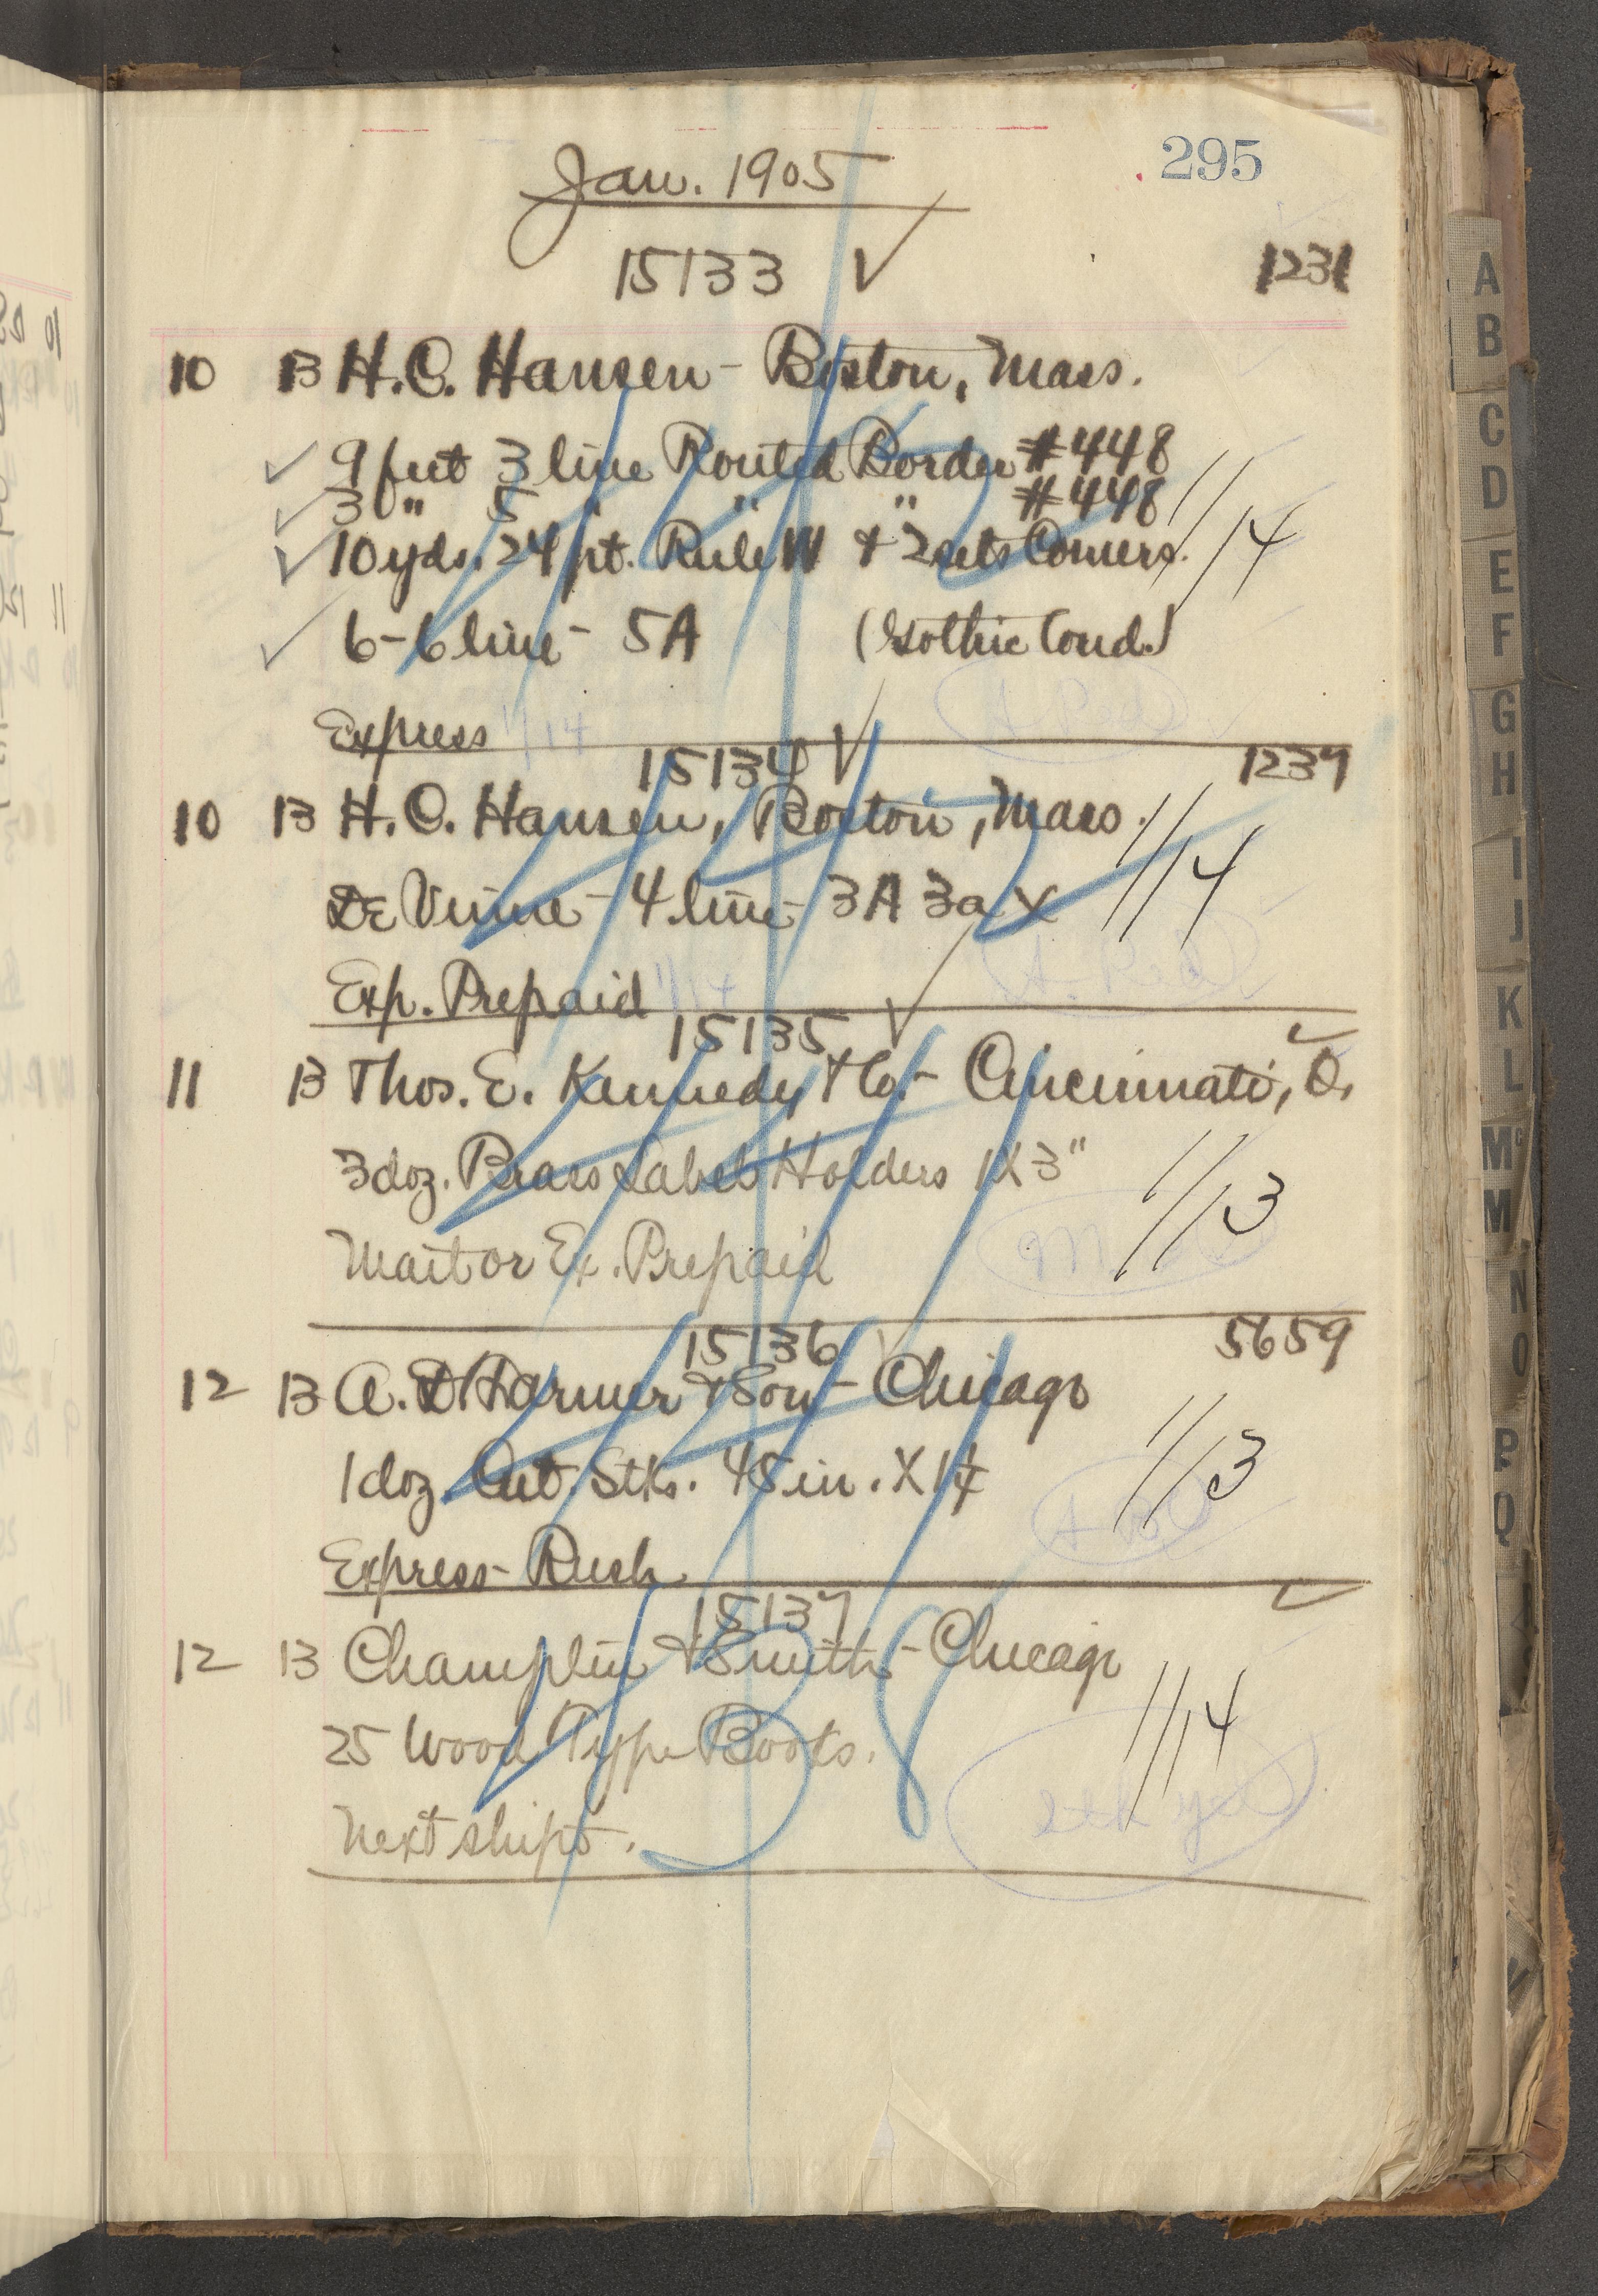 295
Jan. 1905
15133 ✓ 1231
10 13 H.C. Hansen - Boston, Mass.
✓ 9 feet 3 line Routed Border #448
✓ 30 " 5 " " " #448
✓ 10 yds. 24 pt. Rule & 2 sets Corners. 1/14
✓ 6 - 6 line - 5A (Gothic Cond.)
Express 1/14
15134 ✓ 1237
10 13 H.C. Hansen, Boston, Mass. 1/14
De Vinne - 4 line - 3A 3a X
Exp. Prepaid 1/14
15135 ✓
11 13 Thos. E. Kennedy & Co. - Cincinnati, O.
3 doz. Brass Label Holders 1 X 3" 1/13
Mail or Ex. Prepaid
15136 5659
12 13 A. Farmer & Son - Chicago
1 doz. Cut. Stks. 45 in. X 1 1/13
Express - Rush
15137
12 13 Champlin & Smith - Chicago
25 Wood Type Books. 1/14
Next shipt.
A
B
C
D
E
F
G
H
I
J
K
L
Mc
M
N
O
P
Q